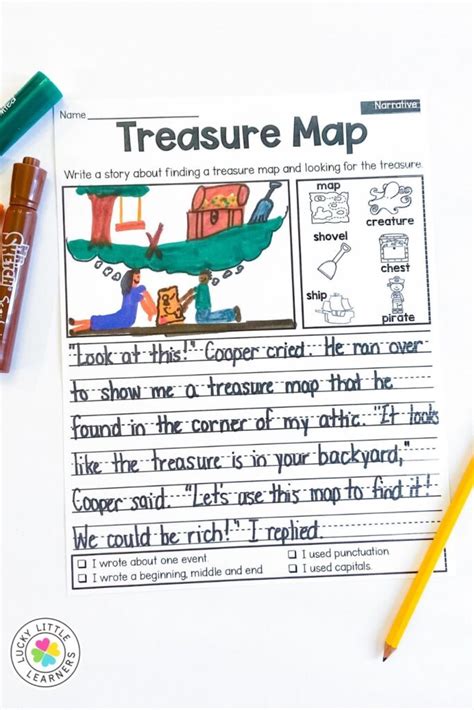 Narrative
Name
Treasure Map
Write a story about finding a treasure map and looking for the treasure.
map
creature
shovel
chest
ship
pirate
"Look at this!" Cooper cried. He ran over
to show me a treasure map that he
found in the corner of my attic. "It looks
like the treasure is in your backyard,"
Cooper said. "Let's use this map to find it!
We could be rich!" I replied.
I wrote about one event
I used punctuation
I wrote a beginning, middle and end
I used capitals.
LUCKY LITTLE
LEARNERS